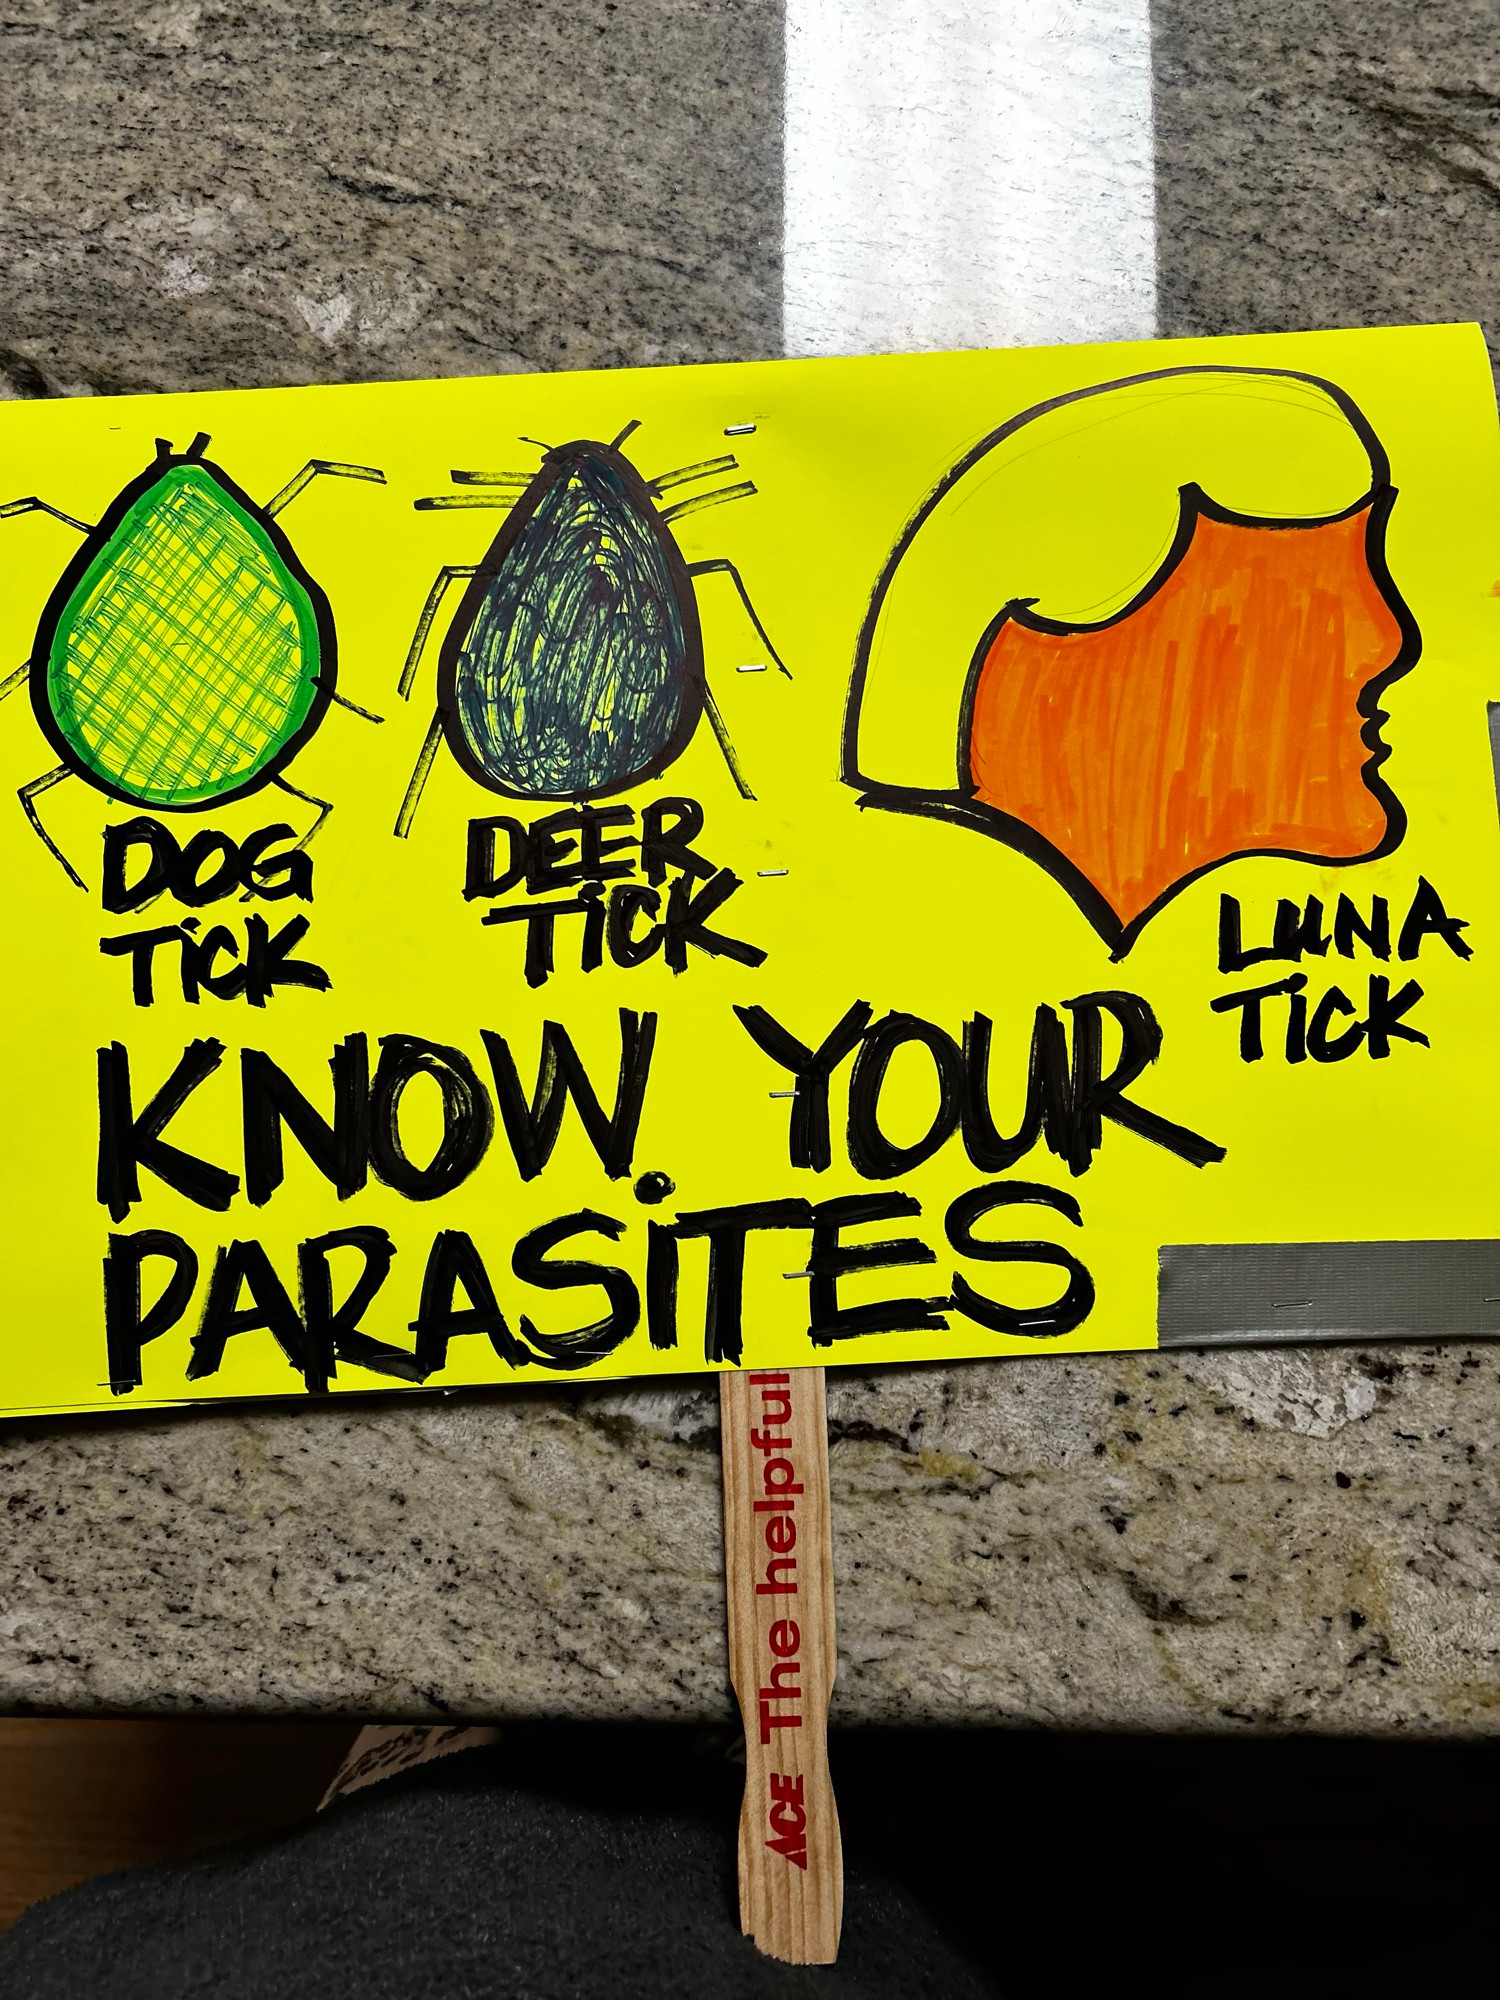 DOG
TiCK
DEER
TiCK
LUNA
TiCK
KNOW YOUR
PARASiTES
ACE The helpful